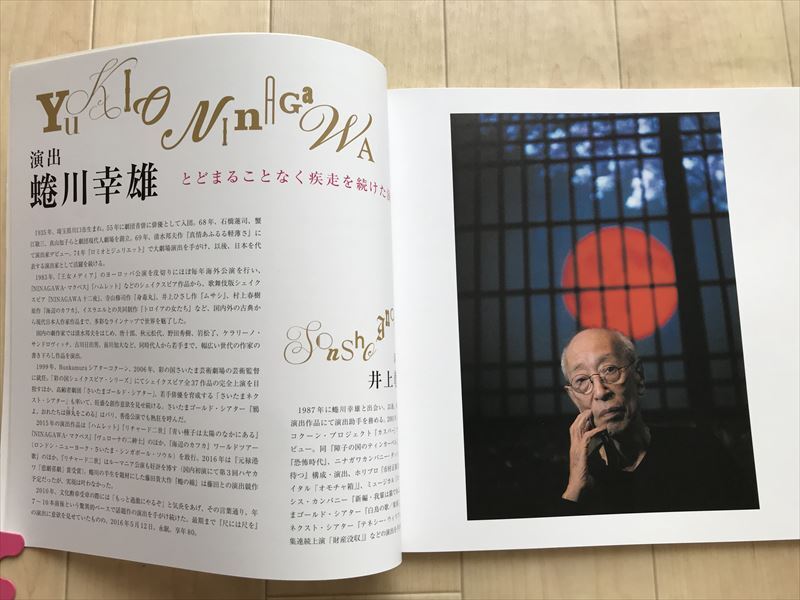 Yukio Ninagawa
演出
蜷川幸雄
とどまることなく疾走を続けた
1935年、埼玉県川口市生まれ。55年に劇団青俳に俳優として入団。68年、石橋蓮司、蟹
江敬三、真山知子らと劇団現代人劇場を創立。69年、清水邦夫作『真情あふるる軽薄さ』に
て演出家デビュー。74年『ロミオとジュリエット』で大劇場演出を手がけ、以後、日本を代
表する演出家として活躍を続ける。
1983年、『王女メディア』のヨーロッパ公演を皮切りにほぼ毎年海外公演を行い、
『NINAGAWA・マクベス』『ハムレット』などのシェイクスピア作品から、歌舞伎版シェイク
スピア『NINAGAWA十二夜』、寺山修司作『身毒丸』、井上ひさし作『ムサシ』、村上春樹
原作『海辺のカフカ』、イスラエルとの共同制作『トロイアの女たち』など、国内外の古典か
ら現代日本人作家作品まで、多彩なラインナップで世界を魅了した。
国内の劇作家では清水邦夫をはじめ、唐十郎、秋元松代、野田秀樹、岩松了、ケラリーノ・
サンドロヴィッチ、古川日出男、前川知大など、同時代人から若手まで、幅広い世代の作家の
書き下ろし作品を演出。
1999年、Bunkamuraシアターコクーン、2006年、彩の国さいたま芸術劇場の芸術監督
に就任。「彩の国シェイクスピア・シリーズ」にてシェイクスピア全37作品の完全上演を目
指すほか、高齢者劇団「さいたまゴールド・シアター」、若手俳優を育成する「さいたまネク
スト・シアター」も率いて、旺盛な創作意欲を見せ続ける。さいたまゴールド・シアター『鴉
よ、おれたちは弾丸をこめる』はパリ、香港公演でも熱狂を呼んだ。
2015年の演出作品は『ハムレット』『リチャード二世』『青い種子は太陽のなかにある』
『NINAGAWA・マクベス』『ヴェローナの二紳士』のほか、『海辺のカフカ』ワールドツアー
（ロンドン・ニューヨーク・さいたま・シンガポール・ソウル）を敢行。2016年は『元禄港
歌』のほか、『リチャード二世』はルーマニア公演も好評を博す
予定だったが、実現は叶わなかった。
2010年、文化勲章受章の際には「もっと過激にやるぞ」と気炎をあげ、その言葉通り、年
7〜10本前後という驚異的ペースで話題作の演出を手がけ続けた。最期まで『尺には尺を』
の演出に意欲を見せていたものの、2016年5月12日、永眠。享年80。
Sonsho
井上
1987年に蜷川幸雄と出会い、以後、
演出作品にて演出助手を務める。
コクーン・プロジェクト『カスパー
ビュー。同『障子の国のティンカーベ
『恐怖時代』、ニナガワカンパニー
待つ』構成・演出、ホリプロ
イタル『オモチャ箱』、ミュージカル
シス・カンパニー『新編・我輩は
まゴールド・シアター『白鳥の歌
ネクスト・シアター『テネシー・ウィ
集連続上演『財産没収』』などの演出を